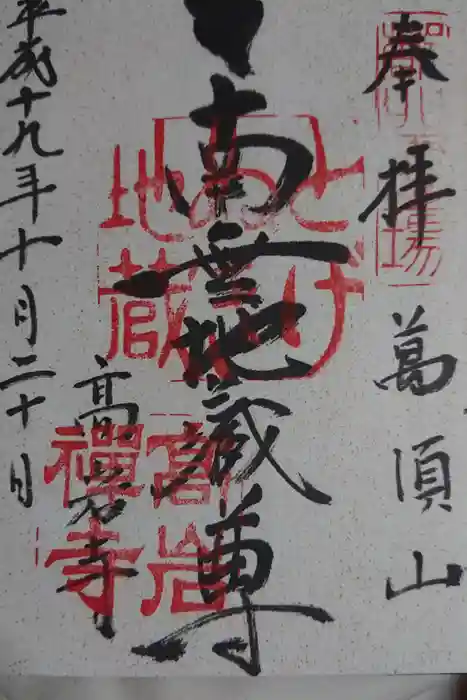 奉拝 萬頂山
南無地蔵尊
高岩寺
平成十九年十月二十日
とげぬき地蔵
高岩禅寺
霊場